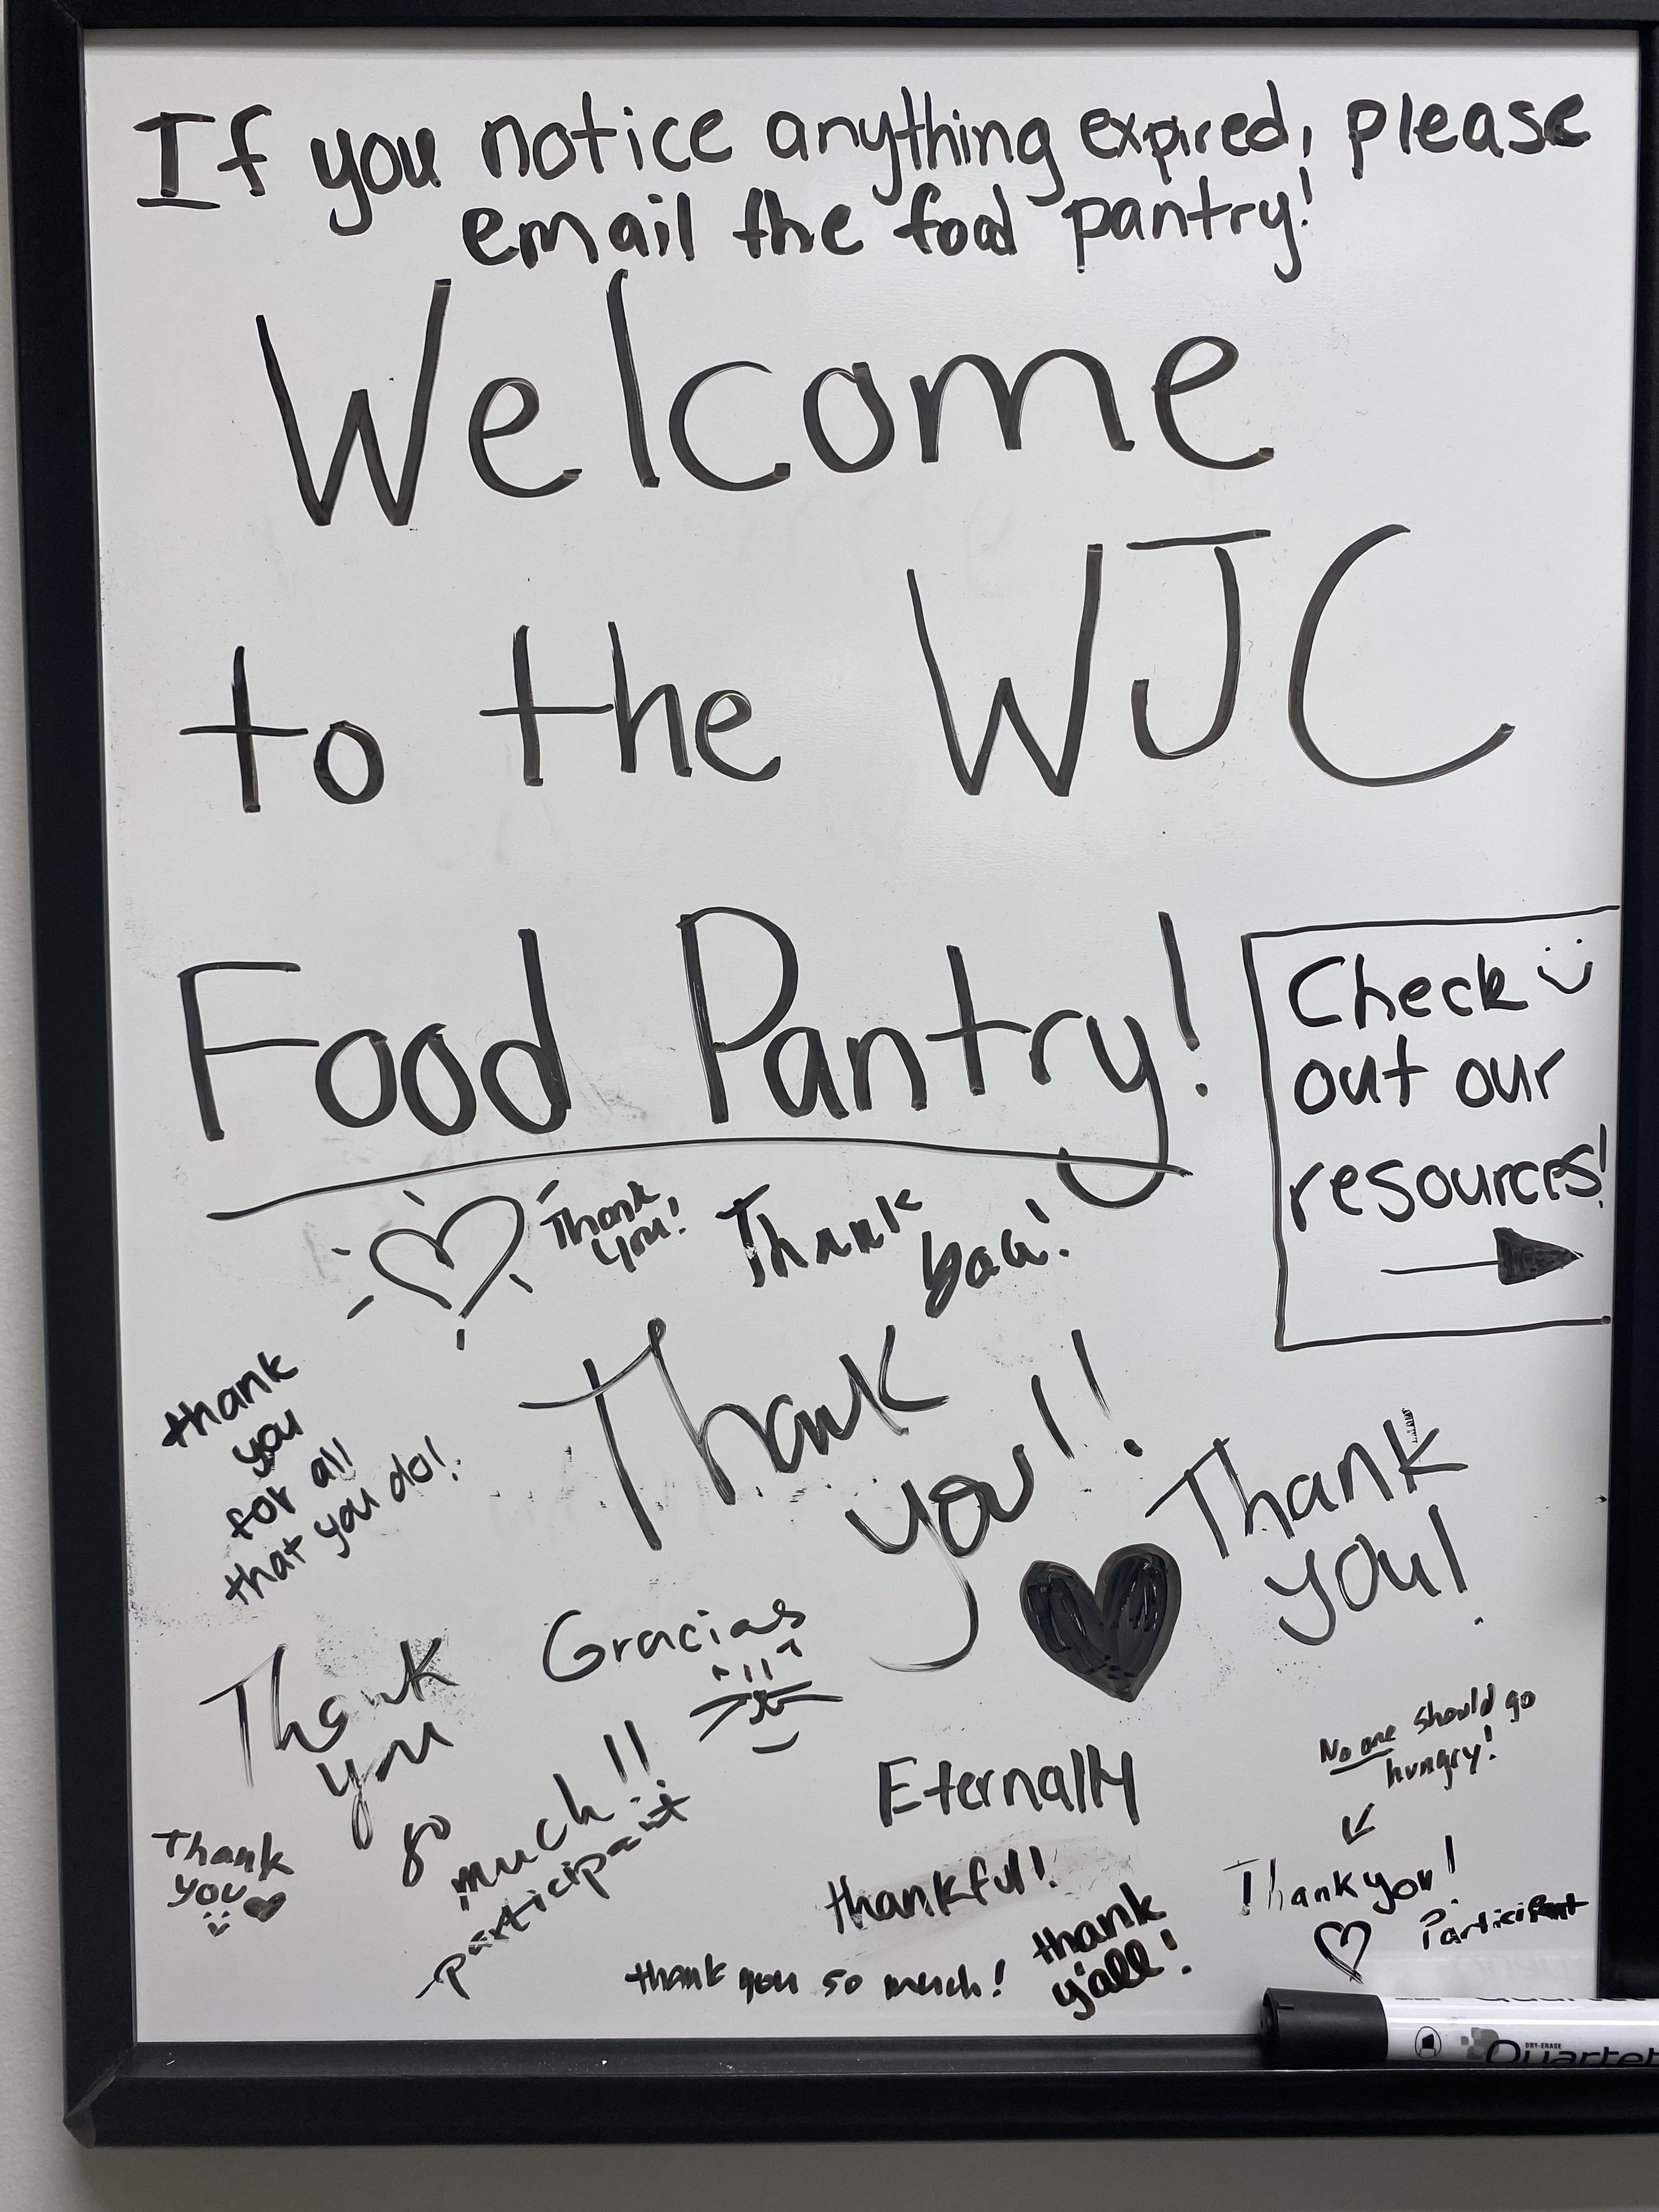 If you notice anything expired, please
email the food pantry!
Welcome
to the WJC
Food Pantry!
Check
out our
resources!
Thank
you!
Thank
you!
thank
you
for all
that you do!
Thank
you!!
Thank
you!
Gracias
Thank
you
so
much!!
participant
Thank
you
Eternally
thankful!
No one should go
hungry!
Thank you!
Participant
thank you so much!
thank
y'all!
DRY-ERASE
Quartet